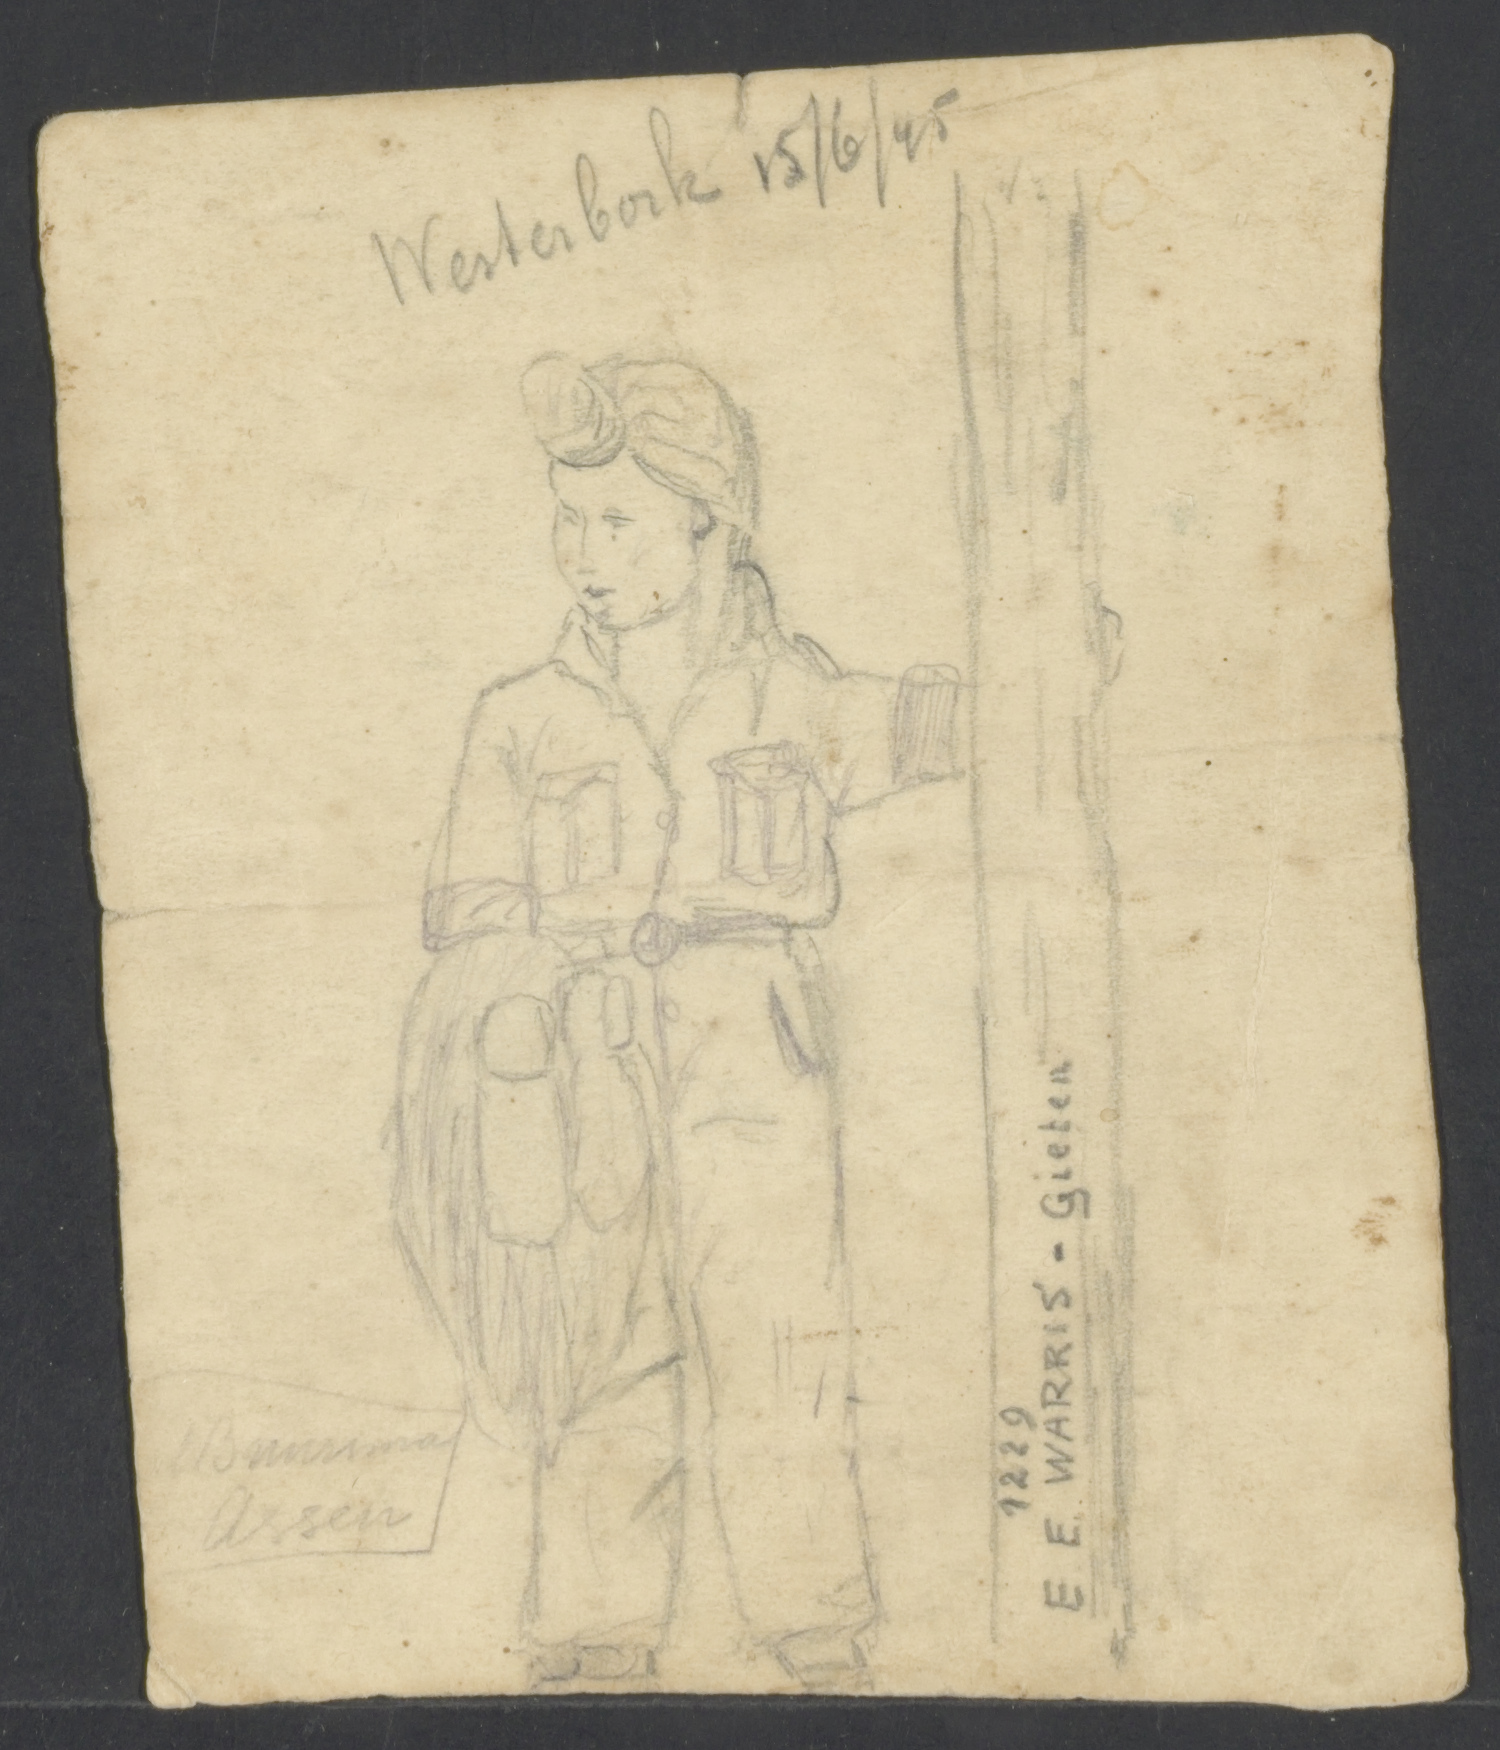 Westerbork 15/6/45
1229
E E. WARRIS - Gieten
Assen